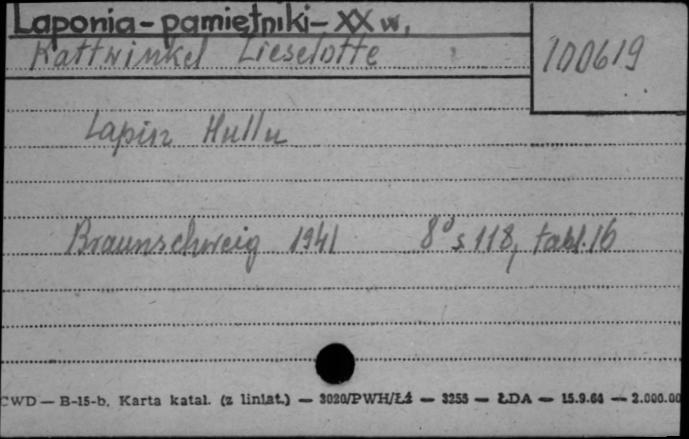 Laponia - pamiętniki - XX w.
Kattwinkel Lieselotte
100619
Lapin Hullu
Braunschweig 1941 8° s. 118, tabl. 16
CWD — B-15-b. Karta katal. (z liniat.) — 3020/PWH/Łź — 3255 — ŁDA — 15.9.64 — 2.000.00